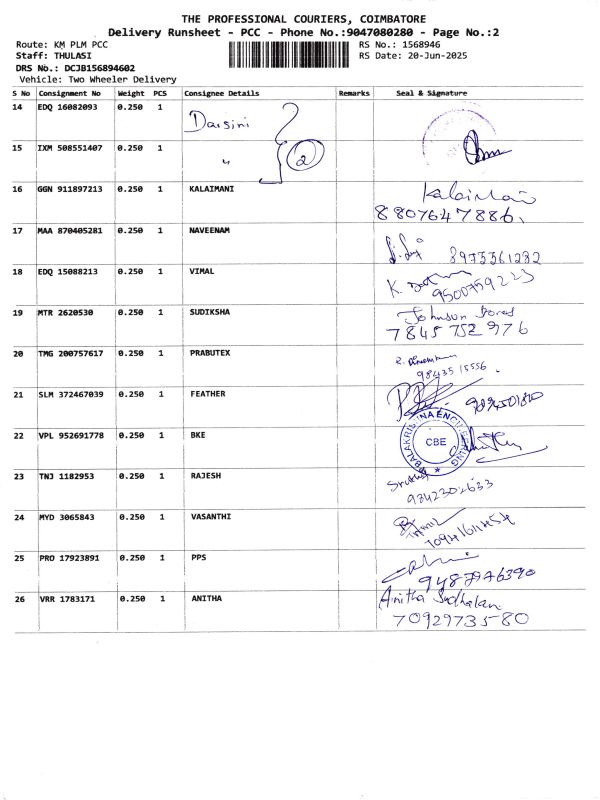 THE PROFESSIONAL COURIERS, COIMBATORE
Delivery Runsheet - PCC - Phone No.:9047080280 - Page No.:2
Route: KM PLM PCC RS No.: 1568946
Staff: THULASI RS Date: 20-Jun-2025
DRS No.: DCJB156894602
Vehicle: Two Wheeler Delivery
S No Consignment No Weight PCS Consignee Details Remarks Seal & Signature
14 EDQ 16082093 0.250 1 Darsini
15 IXM 508551407 0.250 1 " 2
16 GGN 911897213 0.250 1 KALAIMANI Kalaimani
8807647886.
17 MAA 870405281 0.250 1 NAVEENAM 8973361282
18 EDQ 15088213 0.250 1 VIMAL K
9500759223
19 MTR 2620530 0.250 1 SUDIKSHA Johnson Stores
7845 752 976
20 TMG 200757617 0.250 1 PRABUTEX
98435 15556
21 SLM 372467039 0.250 1 FEATHER
22 VPL 952691778 0.250 1 BKE BALAKRISHNA ENGINEERING CBE
23 TNJ 1182953 0.250 1 RAJESH
9342302633
24 MYD 3065843 0.250 1 VASANTHI
25 PRO 17923891 0.250 1 PPS
9487946390
26 VRR 1783171 0.250 1 ANITHA Anitha Sudhakar
7092973580